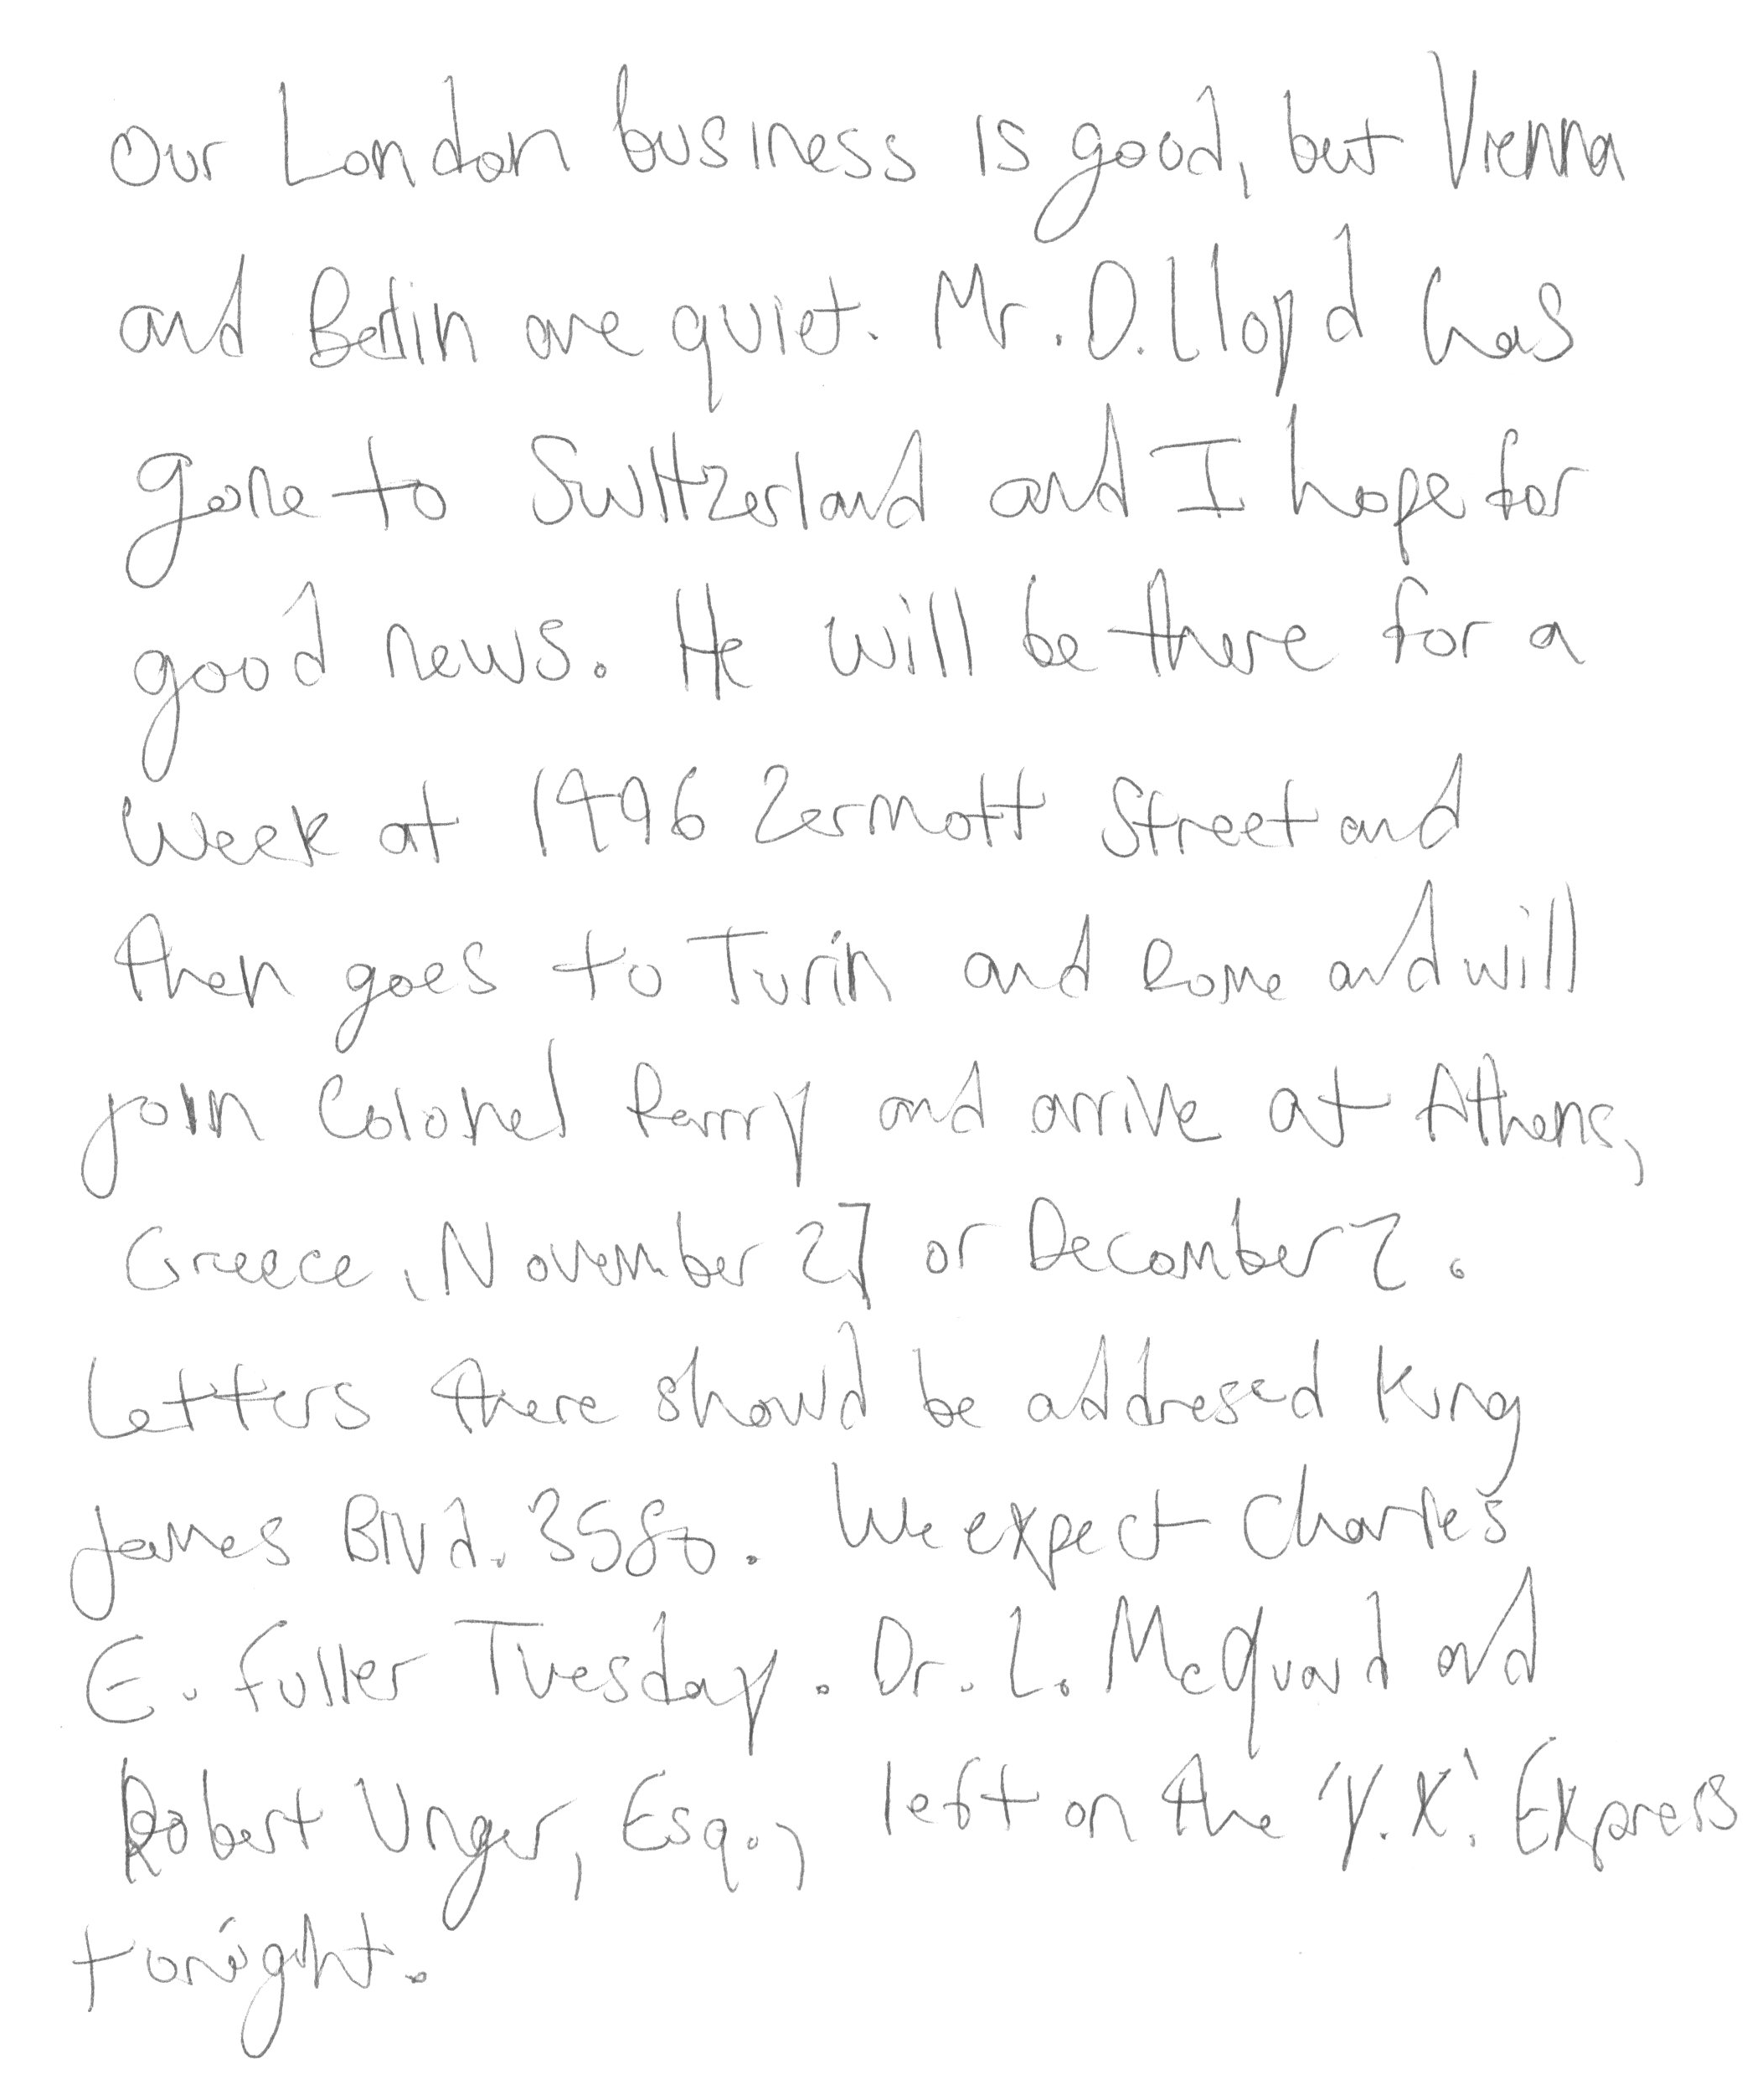 Our London business is good, but Vienna
and Berlin are quiet. Mr. D. Lloyd has
gone to Switzerland and I hope for
good news. He will be there for a
week at 1496 Zermott Street and
then goes to Turin and Rome and will
join Colonel Parry and arrive at Athens,
Greece, November 27 or December 2.
Letters there should be addresed King
James Blvd. 3580. We expect Charles
E. Fuller Tuesday. Dr. L. McQuaid and
Robert Unger, Esq., left on the 'Y.X.' Express
tonight.